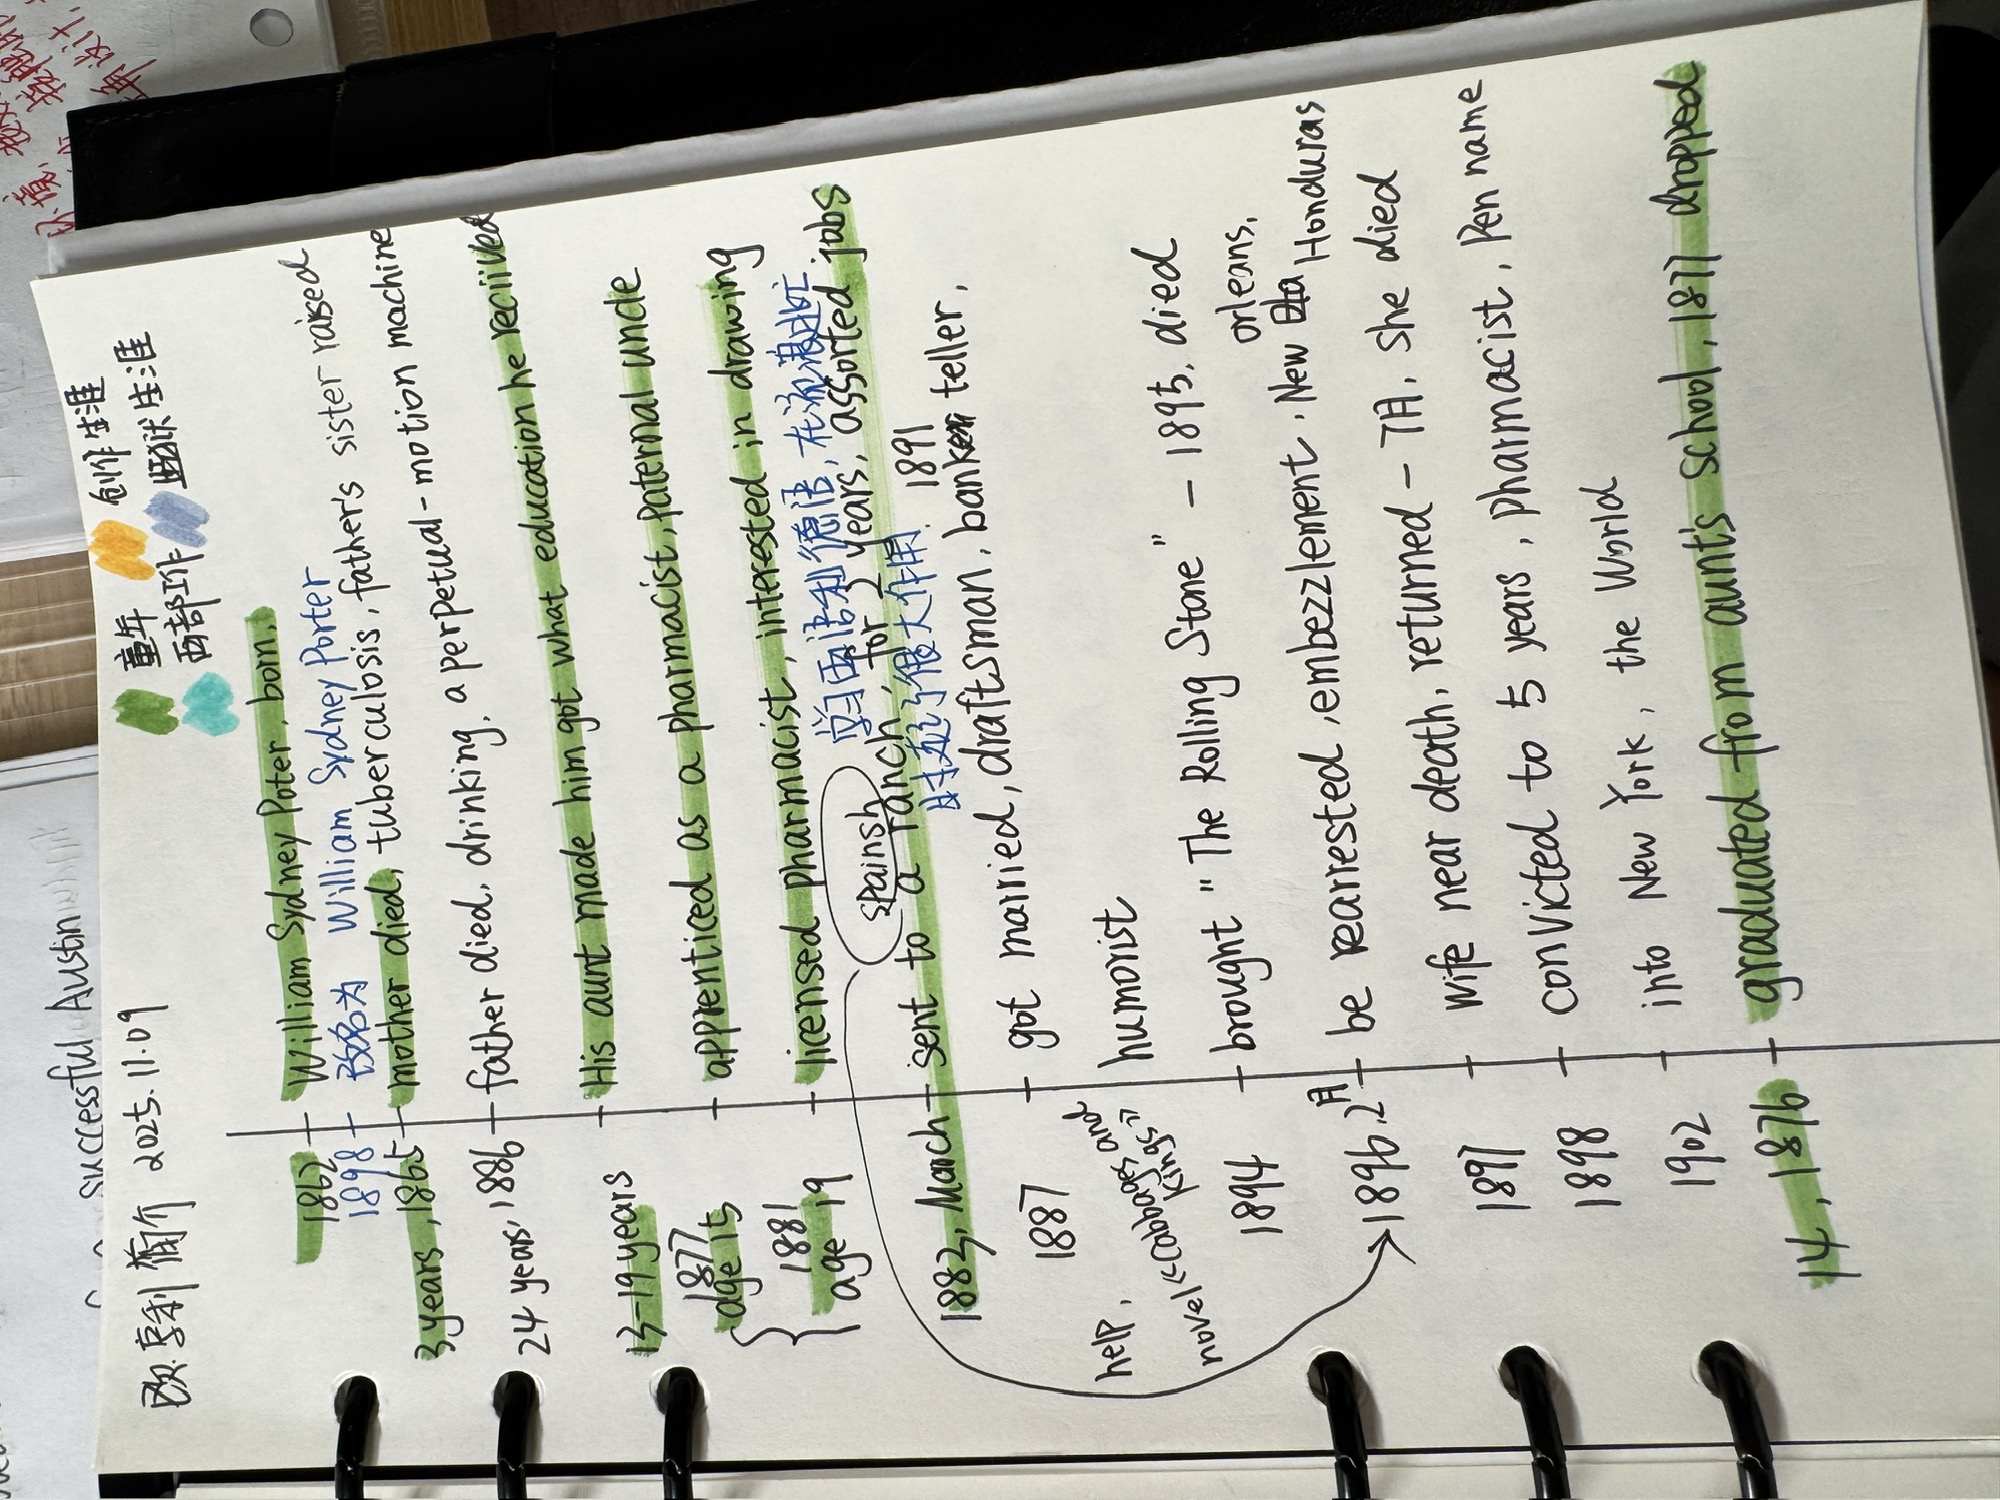 欧.亨利 简介 2025.11.09
童年 创作生涯
西部工作 监狱生涯
1862 William Sydney Poter, born.
1898 改名为 William Sydney Porter
3 years, 1865 mother died, tuberculosis, father's sister raised
24 years, 1886 father died, drinking, a perpetual-motion machine
13-19 years His aunt made him got what education he reciived
1877 age 15 apprenticed as a pharmacist, paternal uncle
1881 age 19 licensed pharmacist, interested in drawing
学习西语和德语, 在流浪逃亡
时起了很大作用.
spainsh
1883, March sent to a ranch, for 2 years, assorted jobs
1887 got married, draftsman, banker teller,
1891
humorist
help,
novel <<Cabbages and
Kings>>
1894 brought "The Rolling Stone" - 1895, died
orleans,
1896.2月 be rearrested, embezzlement, New Honduras
1897 wife near death, returned - 7月, she died
1898 convicted to 5 years, pharmacist, Pen name
1902 into New York, the World
14, 1876 graduated from aunt's school, 1877 dropped
Successful Austin